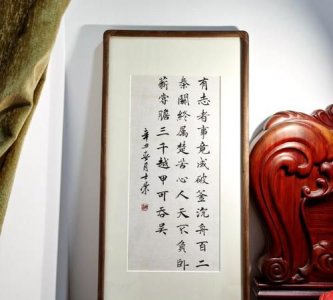 有志者事竟成破釜沉舟百二
秦關終屬楚苦心人天不負卧
薪嘗膽三千越甲可吞吳
辛丑